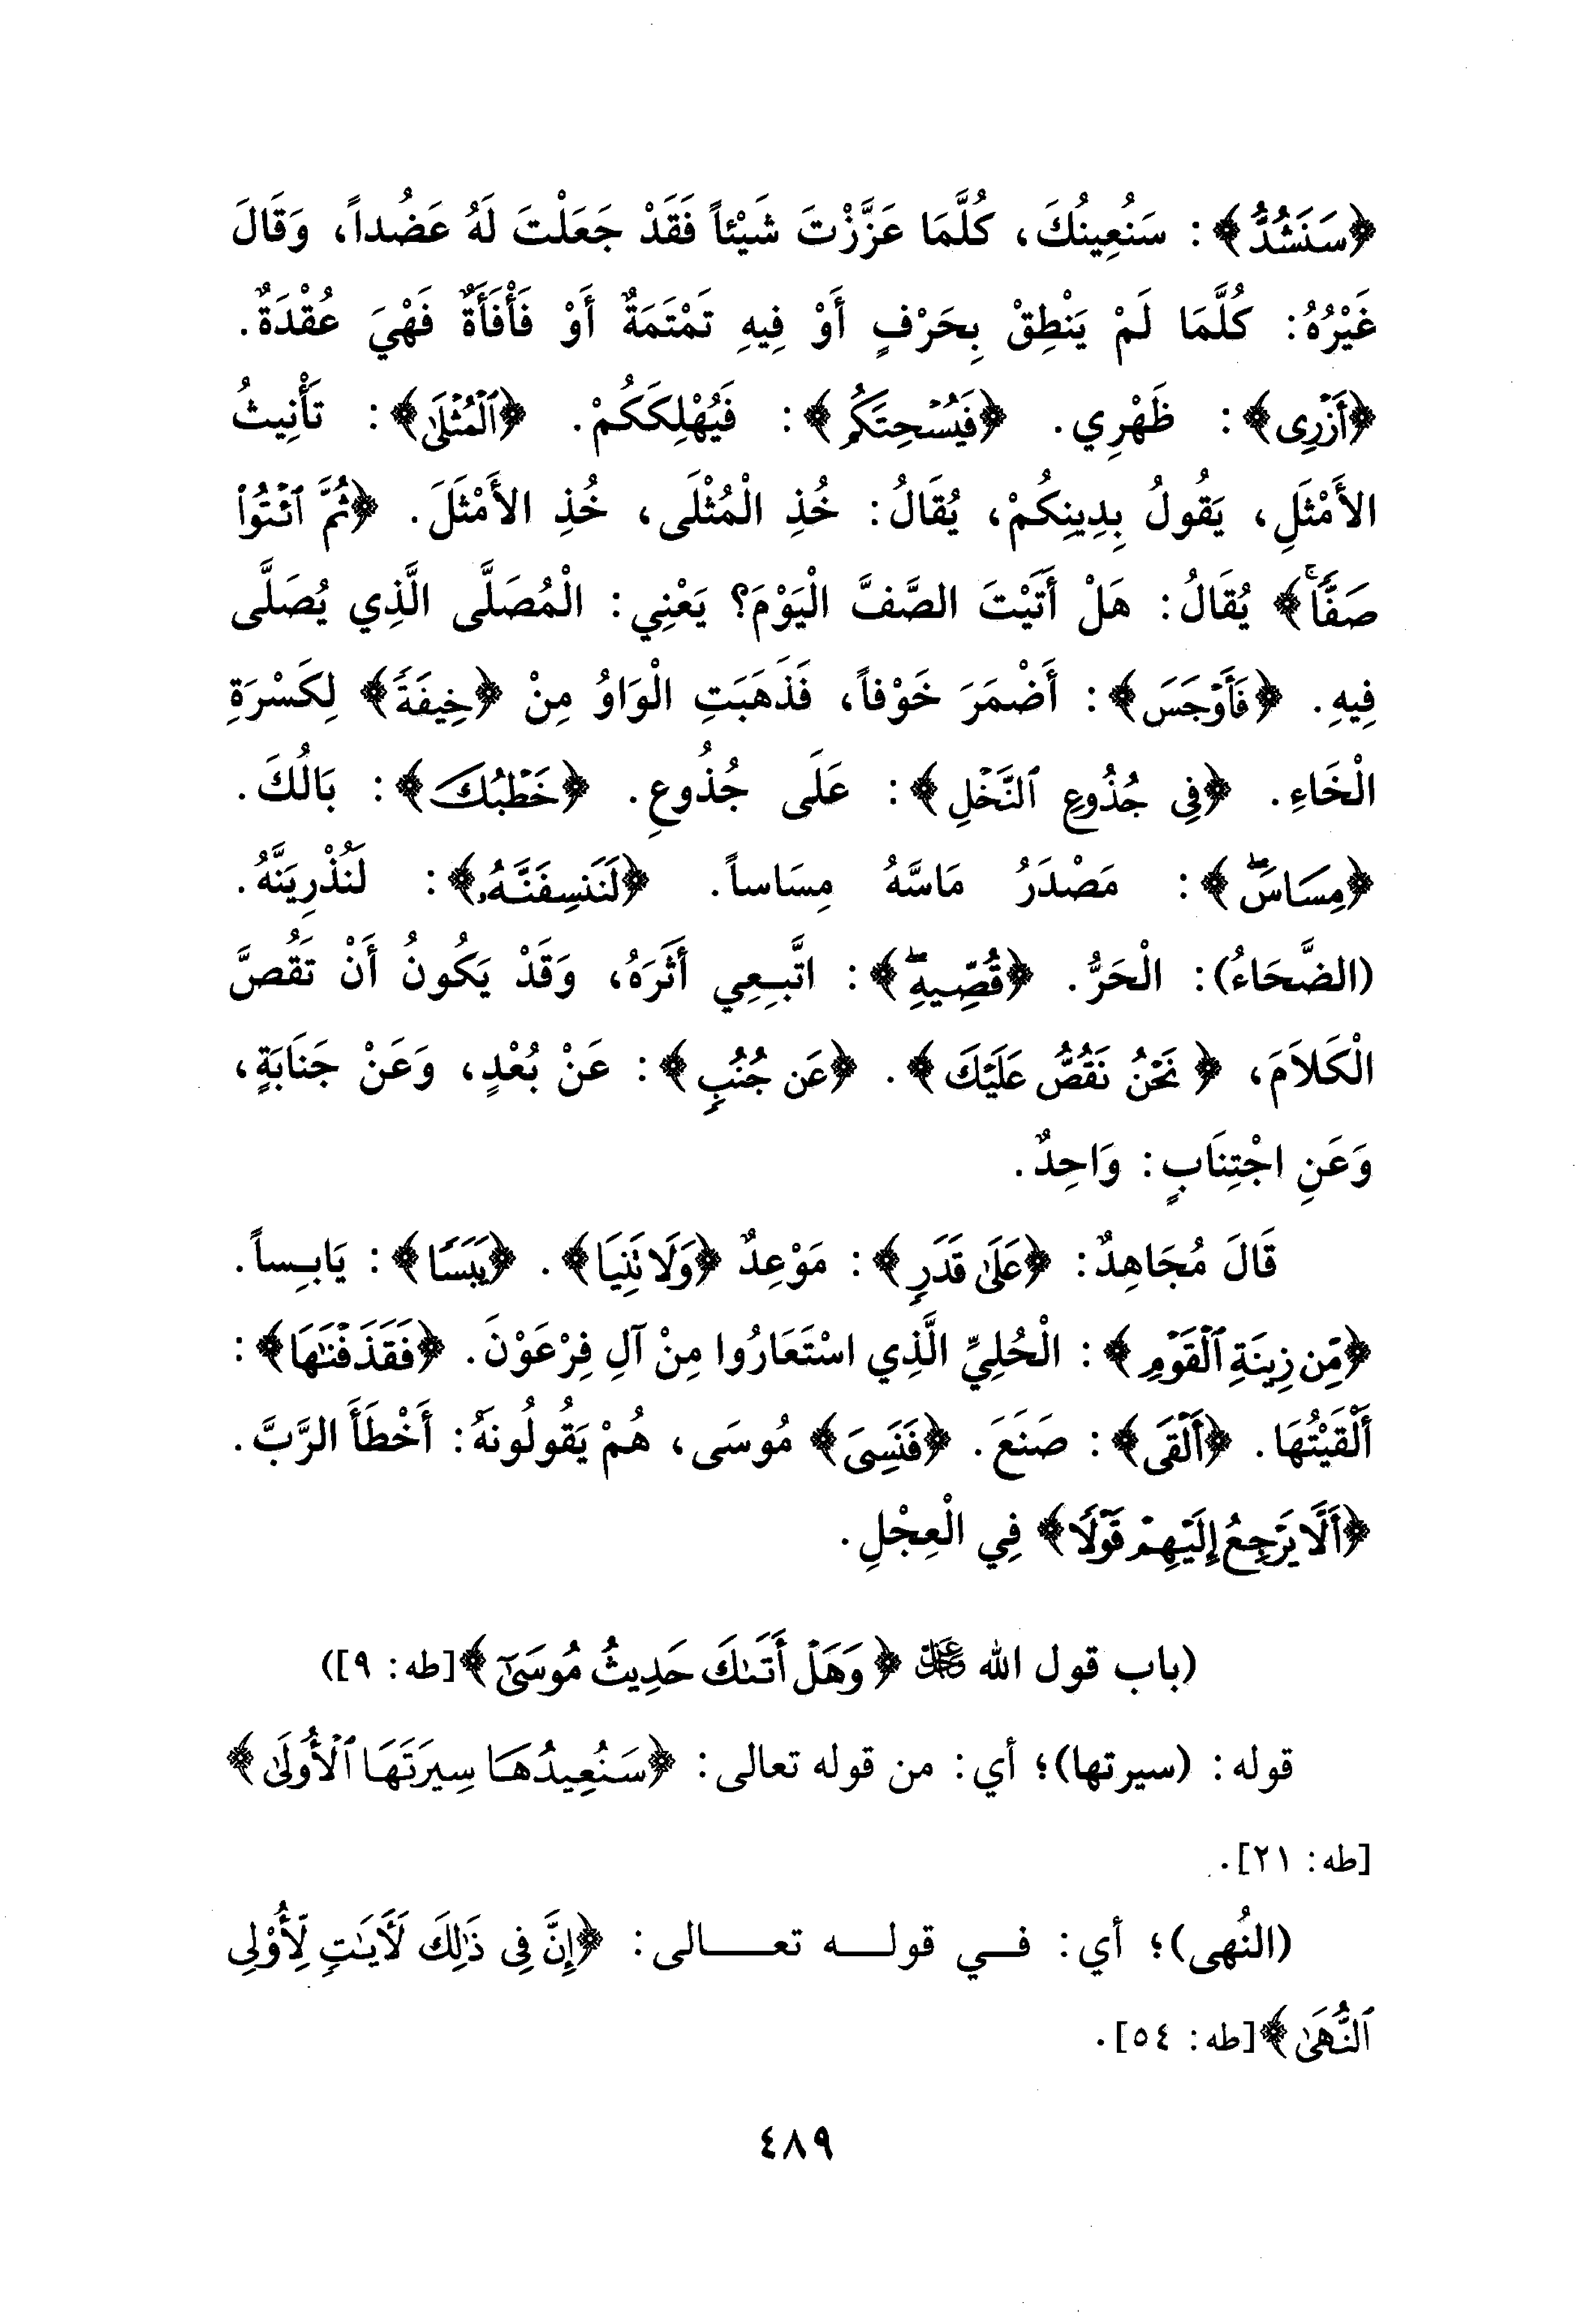 ﴿سَنَشُدُّ﴾: سَنُعِينُكَ، كُلَّمَا عَزَّزْتَ شَيْئاً فَقَدْ جَعَلْتَ لَهُ عَضُداً، وَقَالَ
غَيْرُهُ: كُلَّمَا لَمْ يَنْطِقْ بِحَرْفٍ أَوْ فِيهِ تَمْتَمَةٌ أَوْ فَأْفَأَةٌ فَهْيَ عُقْدَةٌ.
﴿أَزْرِى﴾: ظَهْرِي. ﴿فَيُسْحِتَكُم﴾: فَيُهْلِكَكُمْ. ﴿ٱلْمُثْلَىٰ﴾: تَأْنِيثُ
الأَمْثَلِ، يَقُولُ بِدِينِكُمْ، يُقَالُ: خُذِ الْمُثْلَى، خُذِ الأَمْثَلَ. ﴿ثُمَّ ٱئْتُوا۟
صَفًّا﴾ يُقَالُ: هَلْ أَتَيْتَ الصَّفَّ الْيَوْمَ؟ يَعْنِي: الْمُصَلَّى الَّذِي يُصَلَّى
فِيهِ. ﴿فَأَوْجَسَ﴾: أَضْمَرَ خَوْفاً، فَذَهَبَتِ الْوَاوُ مِنْ ﴿خِيفَةً﴾ لِكَسْرَةِ
الْخَاءِ. ﴿فِى جُذُوعِ ٱلنَّخْلِ﴾: عَلَى جُذُوعِ. ﴿خَطْبُكَ﴾: بَالُكَ.
﴿مِسَاسَ﴾: مَصْدَرُ مَاسَّهُ مِسَاساً. ﴿لَنَنسِفَنَّهُۥ﴾: لَنُذْرِيَنَّهُ.
(الضَّحَاءُ): الْحَرُّ. ﴿قُصِّيهِ﴾: اتَّبِعِي أَثَرَهُ، وَقَدْ يَكُونُ أَنْ تَقُصَّ
الْكَلاَمَ، ﴿نَحْنُ نَقُصُّ عَلَيْكَ﴾. ﴿عَن جُنُبٍ﴾: عَنْ بُعْدٍ، وَعَنْ جَنَابَةٍ،
وَعَنِ اجْتِنَابٍ: وَاحِدٌ.
قَالَ مُجَاهِدٌ: ﴿عَلَىٰ قَدَرٍ﴾: مَوْعِدٌ ﴿وَلَا تَنِيَا﴾. ﴿يَبَسًا﴾: يَابِساً.
﴿مِّن زِينَةِ ٱلْقَوْمِ﴾: الْحُلِيِّ الَّذِي اسْتَعَارُوا مِنْ آلِ فِرْعَوْنَ. ﴿فَقَذَفْنَٰهَا﴾:
أَلْقَيْتُهَا. ﴿أَلْقَى﴾: صَنَعَ. ﴿فَنَسِىَ﴾ مُوسَى، هُمْ يَقُولُونَهُ: أَخْطَأَ الرَّبَّ.
﴿أَلَّا يَرْجِعُ إِلَيْهِمْ قَوْلًا﴾ فِي الْعِجْلِ.
(باب قول الله عز وجل ﴿وَهَلْ أَتَىٰكَ حَدِيثُ مُوسَىٰٓ﴾[طه: ٩])
قوله: (سيرتها)؛ أي: من قوله تعالى: ﴿سَنُعِيدُهَا سِيرَتَهَا ٱلْأُولَىٰ﴾
[طه: ٢١].
(النُهى)؛ أي: في قوله تعالى: ﴿إِنَّ فِى ذَٰلِكَ لَأَيَٰتٍ لِّأُو۟لِى
ٱلنُّهَىٰ﴾[طه: ٥٤].
٤٨٩